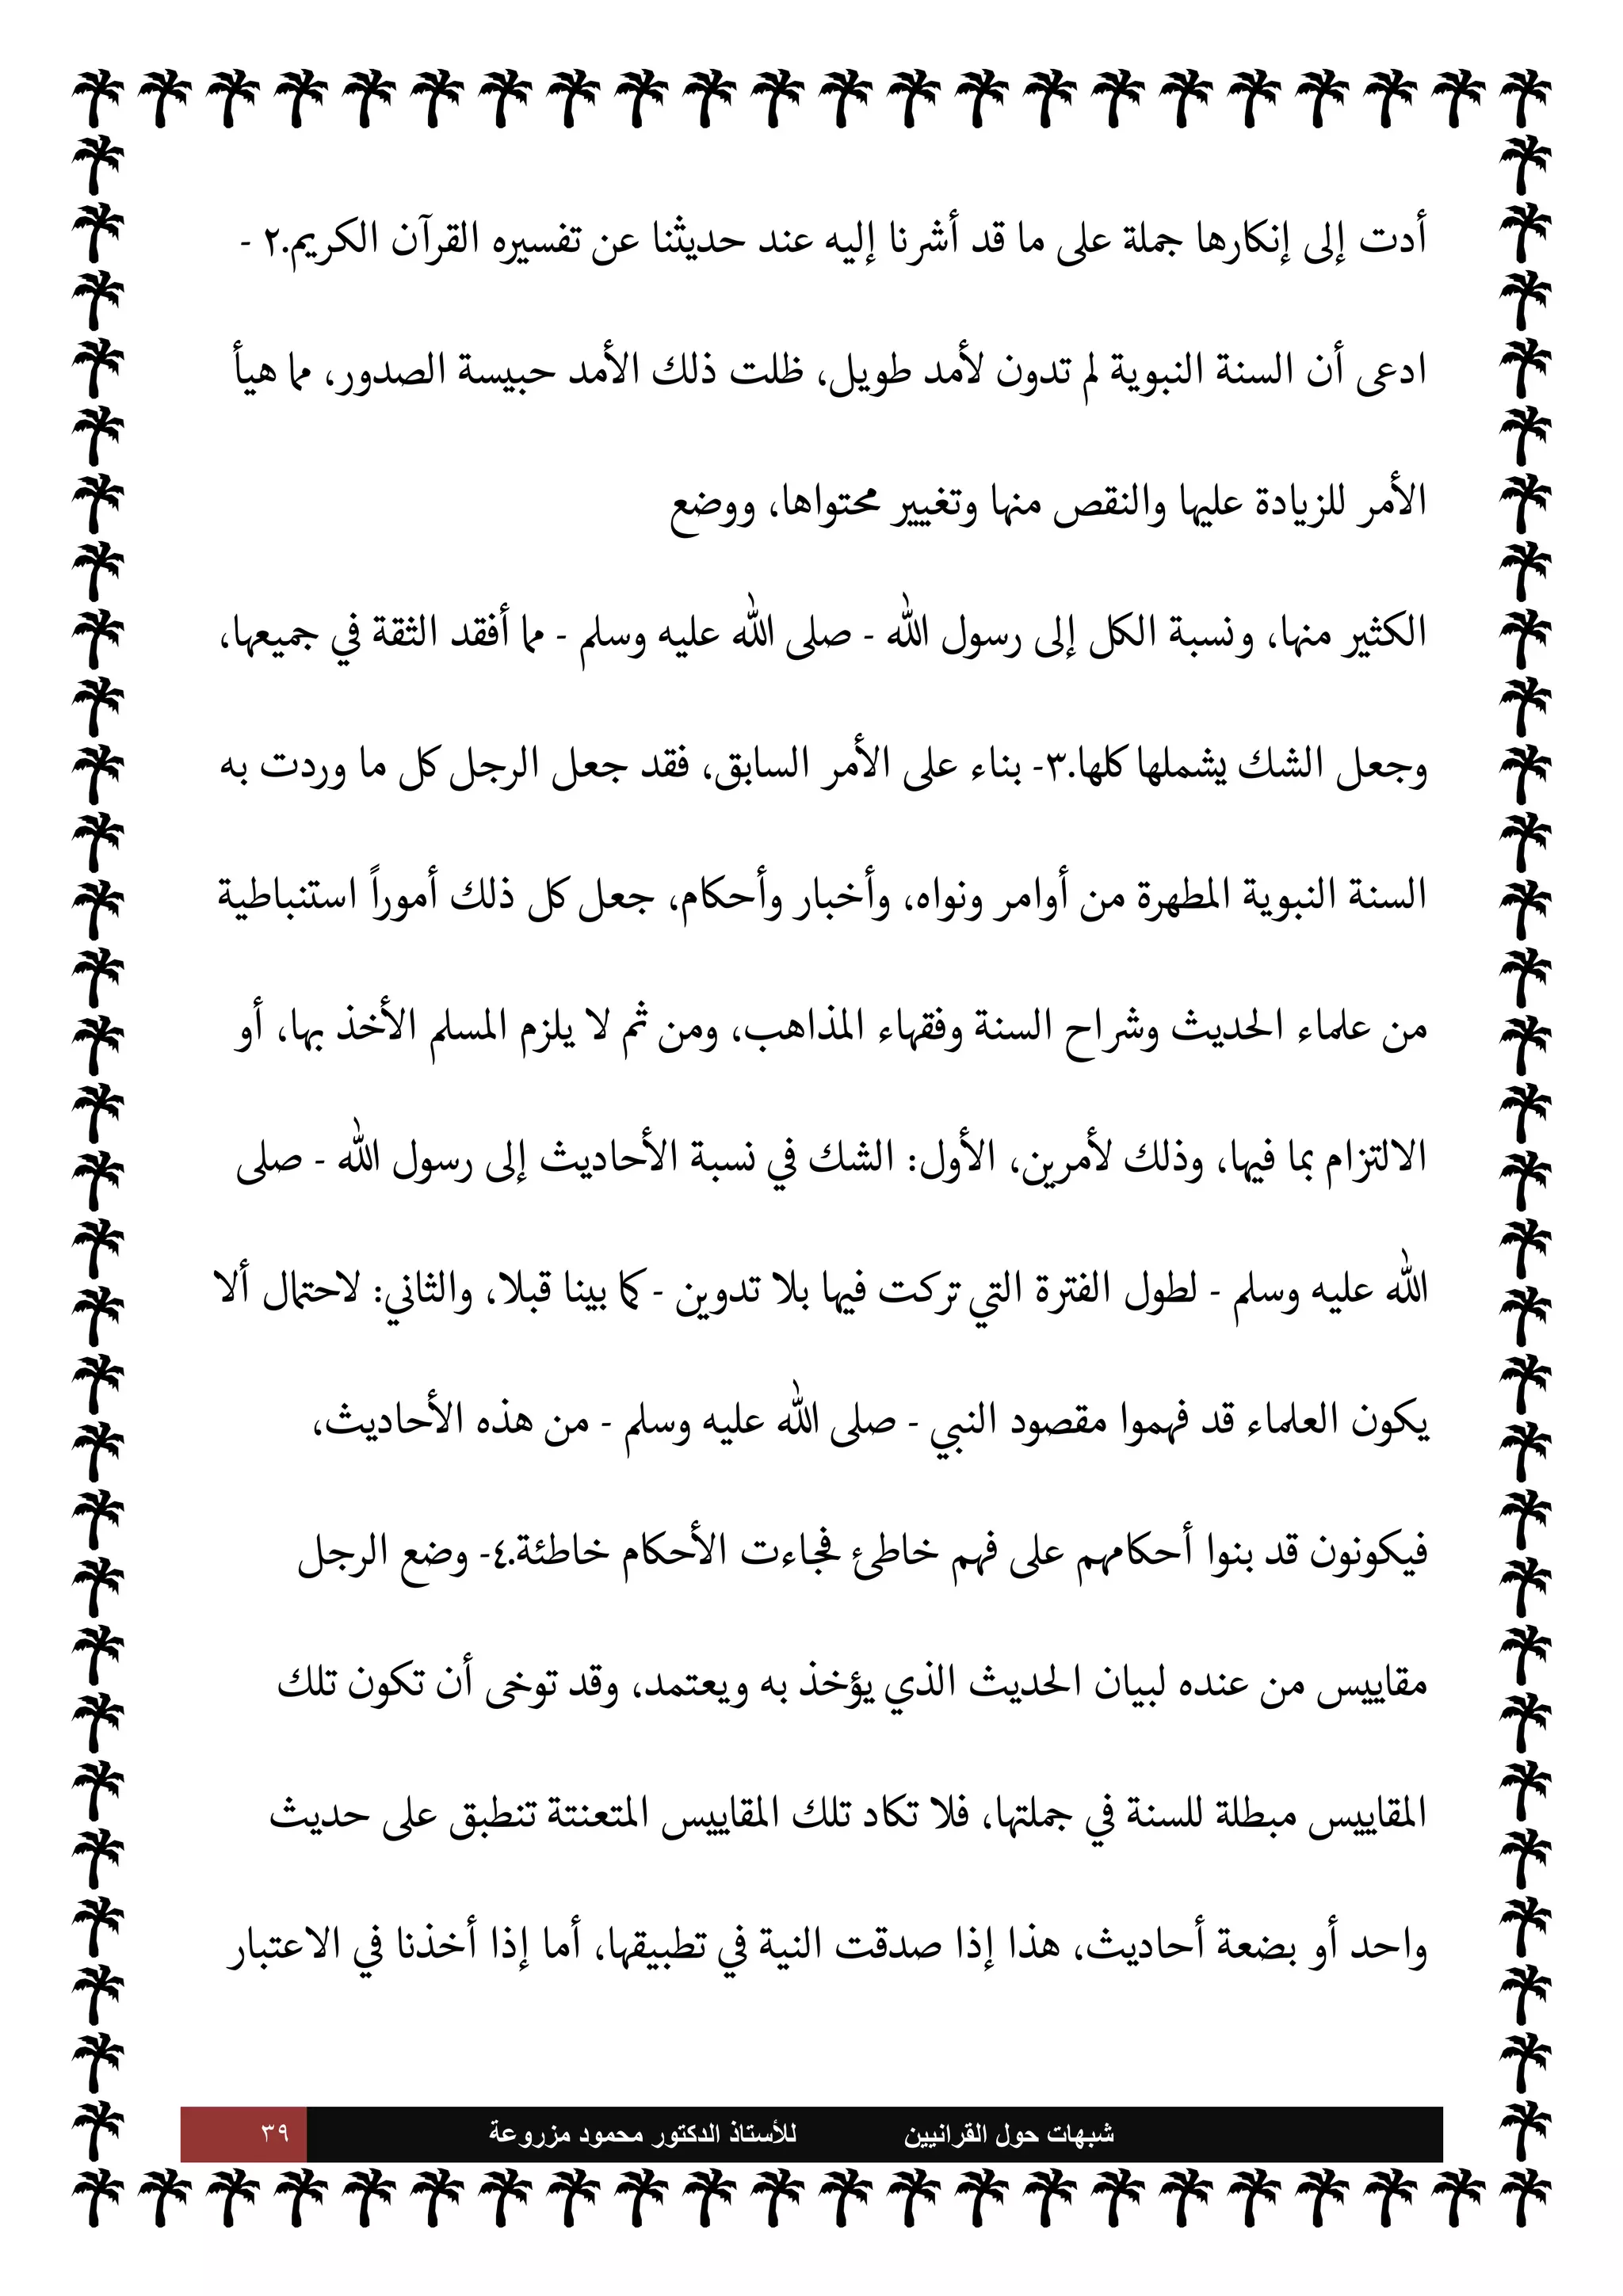 أدت إلى إنكارها جملة على ما قد أشرنا إليه عند حديثنا عن تفسيره القرآن الكريم.٢ -
ادعى أن السنة النبوية لم تدون لأمد طويل، ظلت ذلك الأمد حبيسة الصدور، مما هيأ
الأمر للزيادة عليها والنقص منها وتغيير محتواها، ووضع
الكثير منها، ونسبة الكل إلى رسول الله - صلى الله عليه وسلم - مما أفقد الثقة في جميعها،
وجعل الشك يشملها كلها.٣- بناء على الأمر السابق، فقد جعل الرجل كل ما وردت به
السنة النبوية المطهرة من أوامر ونواه، وأخبار وأحكام، جعل كل ذلك أموراً استنباطية
من علماء الحديث وشراح السنة وفقهاء المذاهب، ومن ثم لا يلزم المسلم الأخذ بها، أو
الالتزام بما فيها، وذلك لأمرين، الأول: الشك في نسبة الأحاديث إلى رسول الله - صلى
الله عليه وسلم - لطول الفترة التي تركت فيها بلا تدوين - كما بينا قبلا، والثاني: لاحتمال ألا
يكون العلماء قد فهموا مقصود النبي - صلى الله عليه وسلم - من هذه الأحاديث،
فيكونون قد بنوا أحكامهم على فهم خاطئ فجاءت الأحكام خاطئة.٤- وضع الرجل
مقاييس من عنده لبيان الحديث الذي يؤخذ به ويعتمد، وقد توخى أن تكون تلك
المقاييس مبطلة للسنة في جملتها، فلا تكاد تلك المقاييس المتعنتة تنطبق على حديث
واحد أو بضعة أحاديث، هذا إذا صدقت النية في تطبيقها، أما إذا أخذنا في الاعتبار
شبهات حول القرانيين للأستاذ الدكتور محمود مزروعة ٣٩